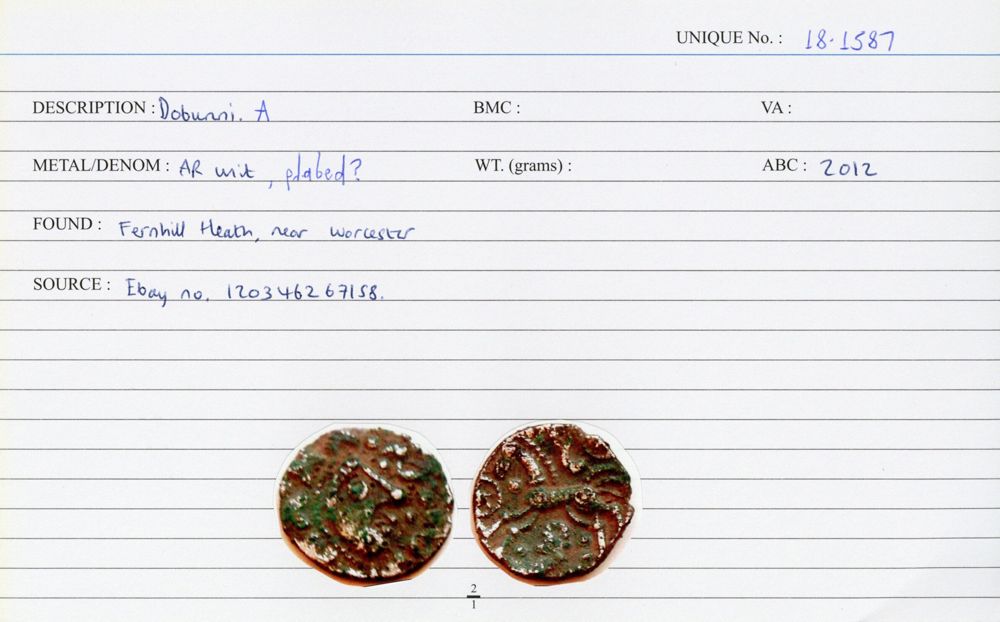 UNIQUE No. : 18.1587
DESCRIPTION : Dobunni. A BMC : VA :
METAL/DENOM : AR unit, plated? WT. (grams) : ABC : 2012
FOUND : Fernhill Heath, near Worcester
SOURCE : Ebay no. 120346267158.
2
1